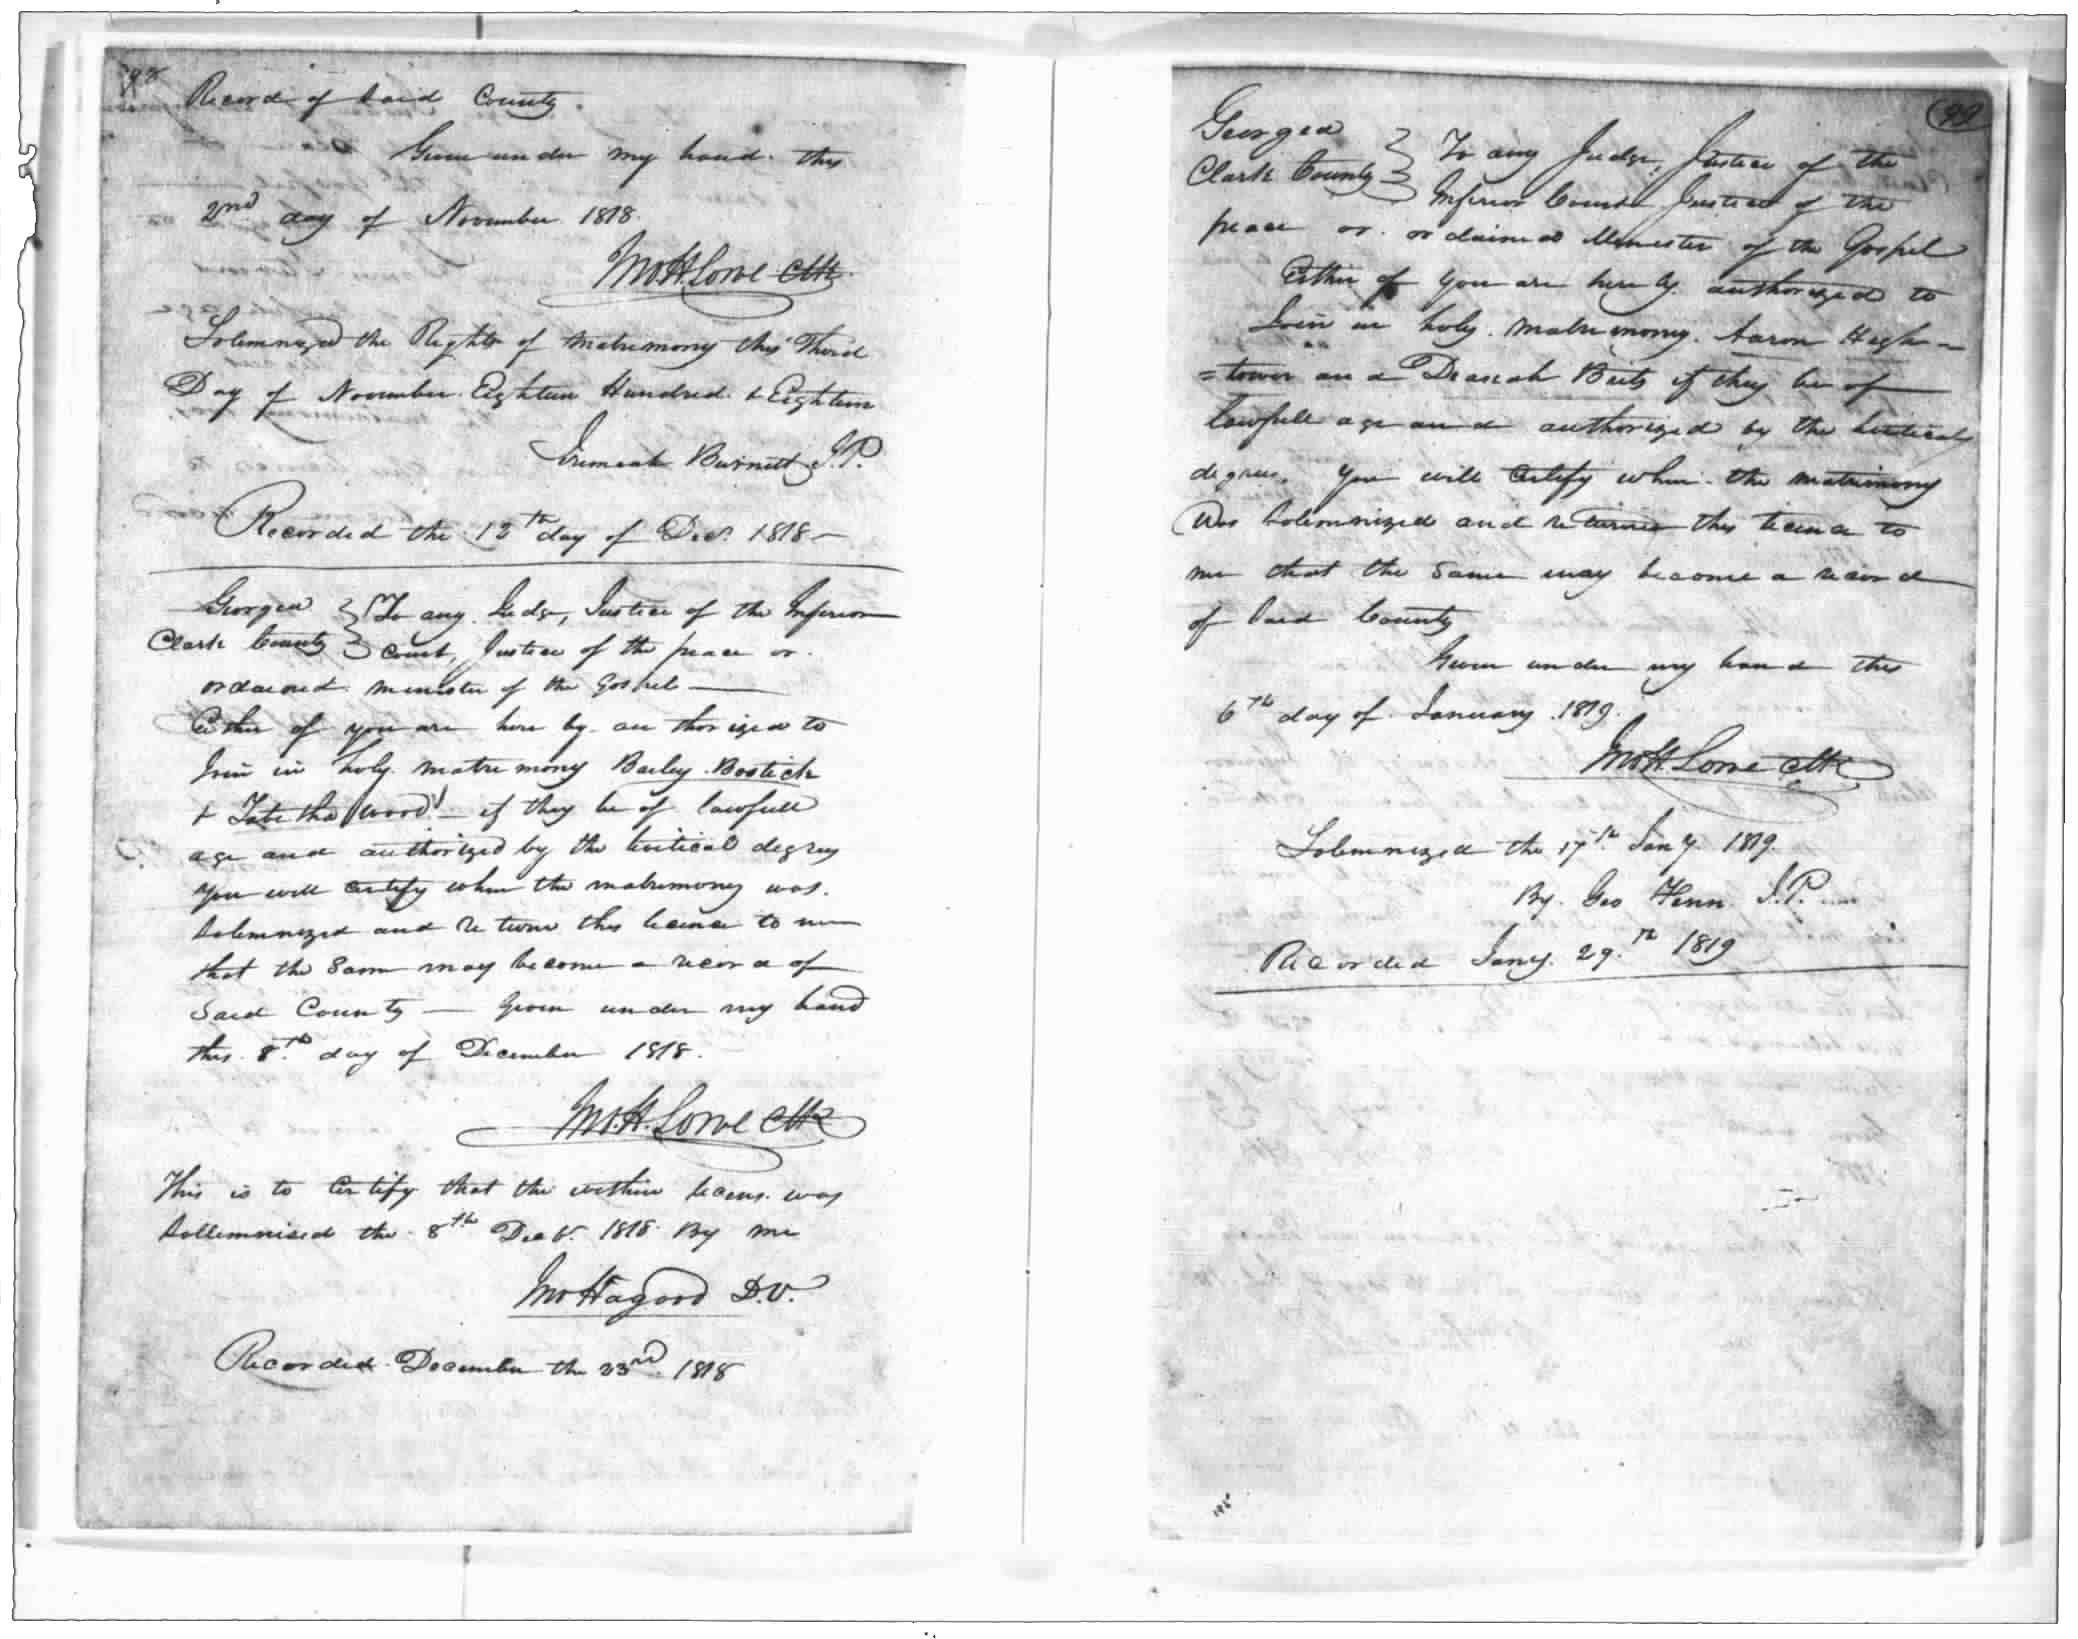 98
Record of Said County.
Given under my hand this
2nd day of November 1818.
Jno H. Lowe Clk
Solemnized the Rights of Matrimony this Third
Day of November Eighteen Hundred & Eighteen
Jeremiah Burnett J.P.
Recorded the 12th day of Decr. 1818
Georgia } To any Judge, Justice of the Inferior
Clark County } Court, Justice of the peace or
ordained minister of the Gospel
Either of you are here by authorized to
Join in holy matrimony Bailey Bostick
& Tabitha Wood if they be of lawfull
age and authorized by the levitical degrees
you will certify when the matrimony was
Solemnized and return this licence to me
that the Same may become a record of
Said County — Given under my hand
this 8th day of December 1818.
Jno. H. Lowe Clk
This is to Certify that the within licens. was
Sollemnised the 8th Decr. 1818 By me
Jno Hagood D.V.
Recorded December the 23rd 1818
99
Georgia } To any Judge, Justice of the
Clark County } Inferior Court Justice of the
peace or ordained Minister of the Gospel
Either of you are here by authorized to
Join in holy matrimony Aaron High-
=tower and Beits if they be of
lawfull age and authorized by the levitical
degrees. You will certify when the matrimony
Was Solemnized and return this licence to
me that the Same may become a record
of Said County
Given under my hand this
6th day of January 1819.
Jno H. Lowe Clk
Solemnized the 17th Jany. 1819.
By Geo J.P.
Recorded Jany. 29th 1819